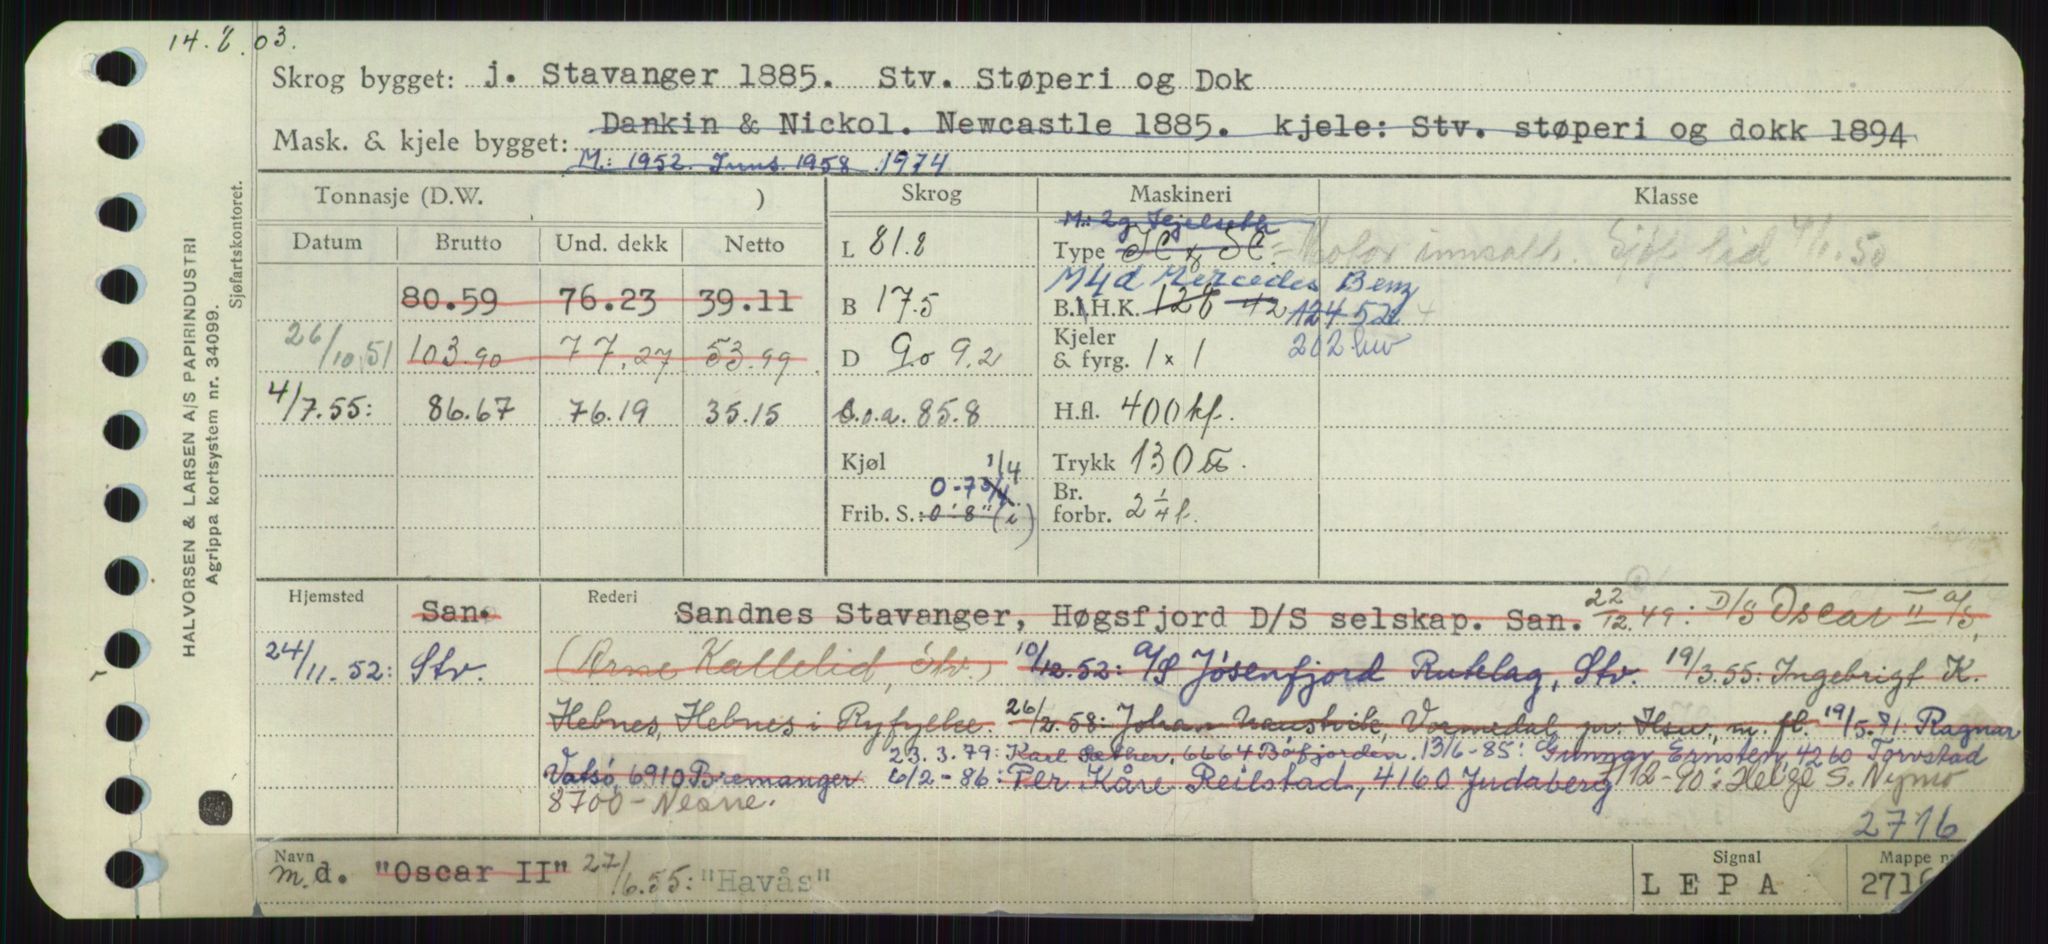 14.8.03.
Skrog bygget: j. Stavanger 1885. Stv. Støperi og Dok
Mask. & kjele bygget: Dankin & Nickol. Newcastle 1885. kjele: Stv. støperi og dokk 1894
M: 1952. Inns. 1958 1974
HALVORSEN & LARSEN A/S PAPIRINDUSTRI
Agrippa kortsystem nr. 34099.
Sjøfartskontoret.
Tonnasje (D.W. ) Skrog Maskineri Klasse
Datum Brutto Und. dekk Netto
80.59 76.23 39.11
26/10.51 103.90 77.27 53.99
4/7.55: 86.67 76.19 35.15
L 81.8
B 17.5
D 9.0 9.2
L.o.a. 85.8
Kjøl
0-7 3/4 1/4
Frib. S.: 0'-8" (i )
M: 2g.
Type Motor innsatt. 4/1.50
M4d Mercedes Benz
B.I.H.K. 128 42 124 52
202 hw
Kjeler
& fyrg. 1 x 1
H.fl. 400 kf.
Trykk 130 lb.
Br.
forbr. 2 1/4 t.
Hjemsted San. Rederi Sandnes Stavanger, Høgsfjord D/S selskap. San. 22/12.49: D/S Oscar II A/S,
24/11.52: Stv. (Arne Kallelid, Stv.) 10/12.52: A/S Jøsenfjord Rutelag, Stv. 19/3.55: Ingebrigt K.
Hebnes, Hebnes i Ryfylke. 26/2.58: Johan Naustvik, Vormedal pr. Hsu., m. fl. 19/5.71: Ragnar
23.3.79: Karl Sæther, 6664 Bøfjorden. 13/6-85: Gunnar Ernsten, 4260 Torvstad
Vatsø, 6910 Bremanger 6/2-86: Per Kåre Reilstad, 4160 Judaberg /12-90: Helge S. Nymo
8700 - Nesna.
2716
Navn m.d. "Oscar II" 27/6.55: "Havås"
Signal LEPA
Mappe n 2716